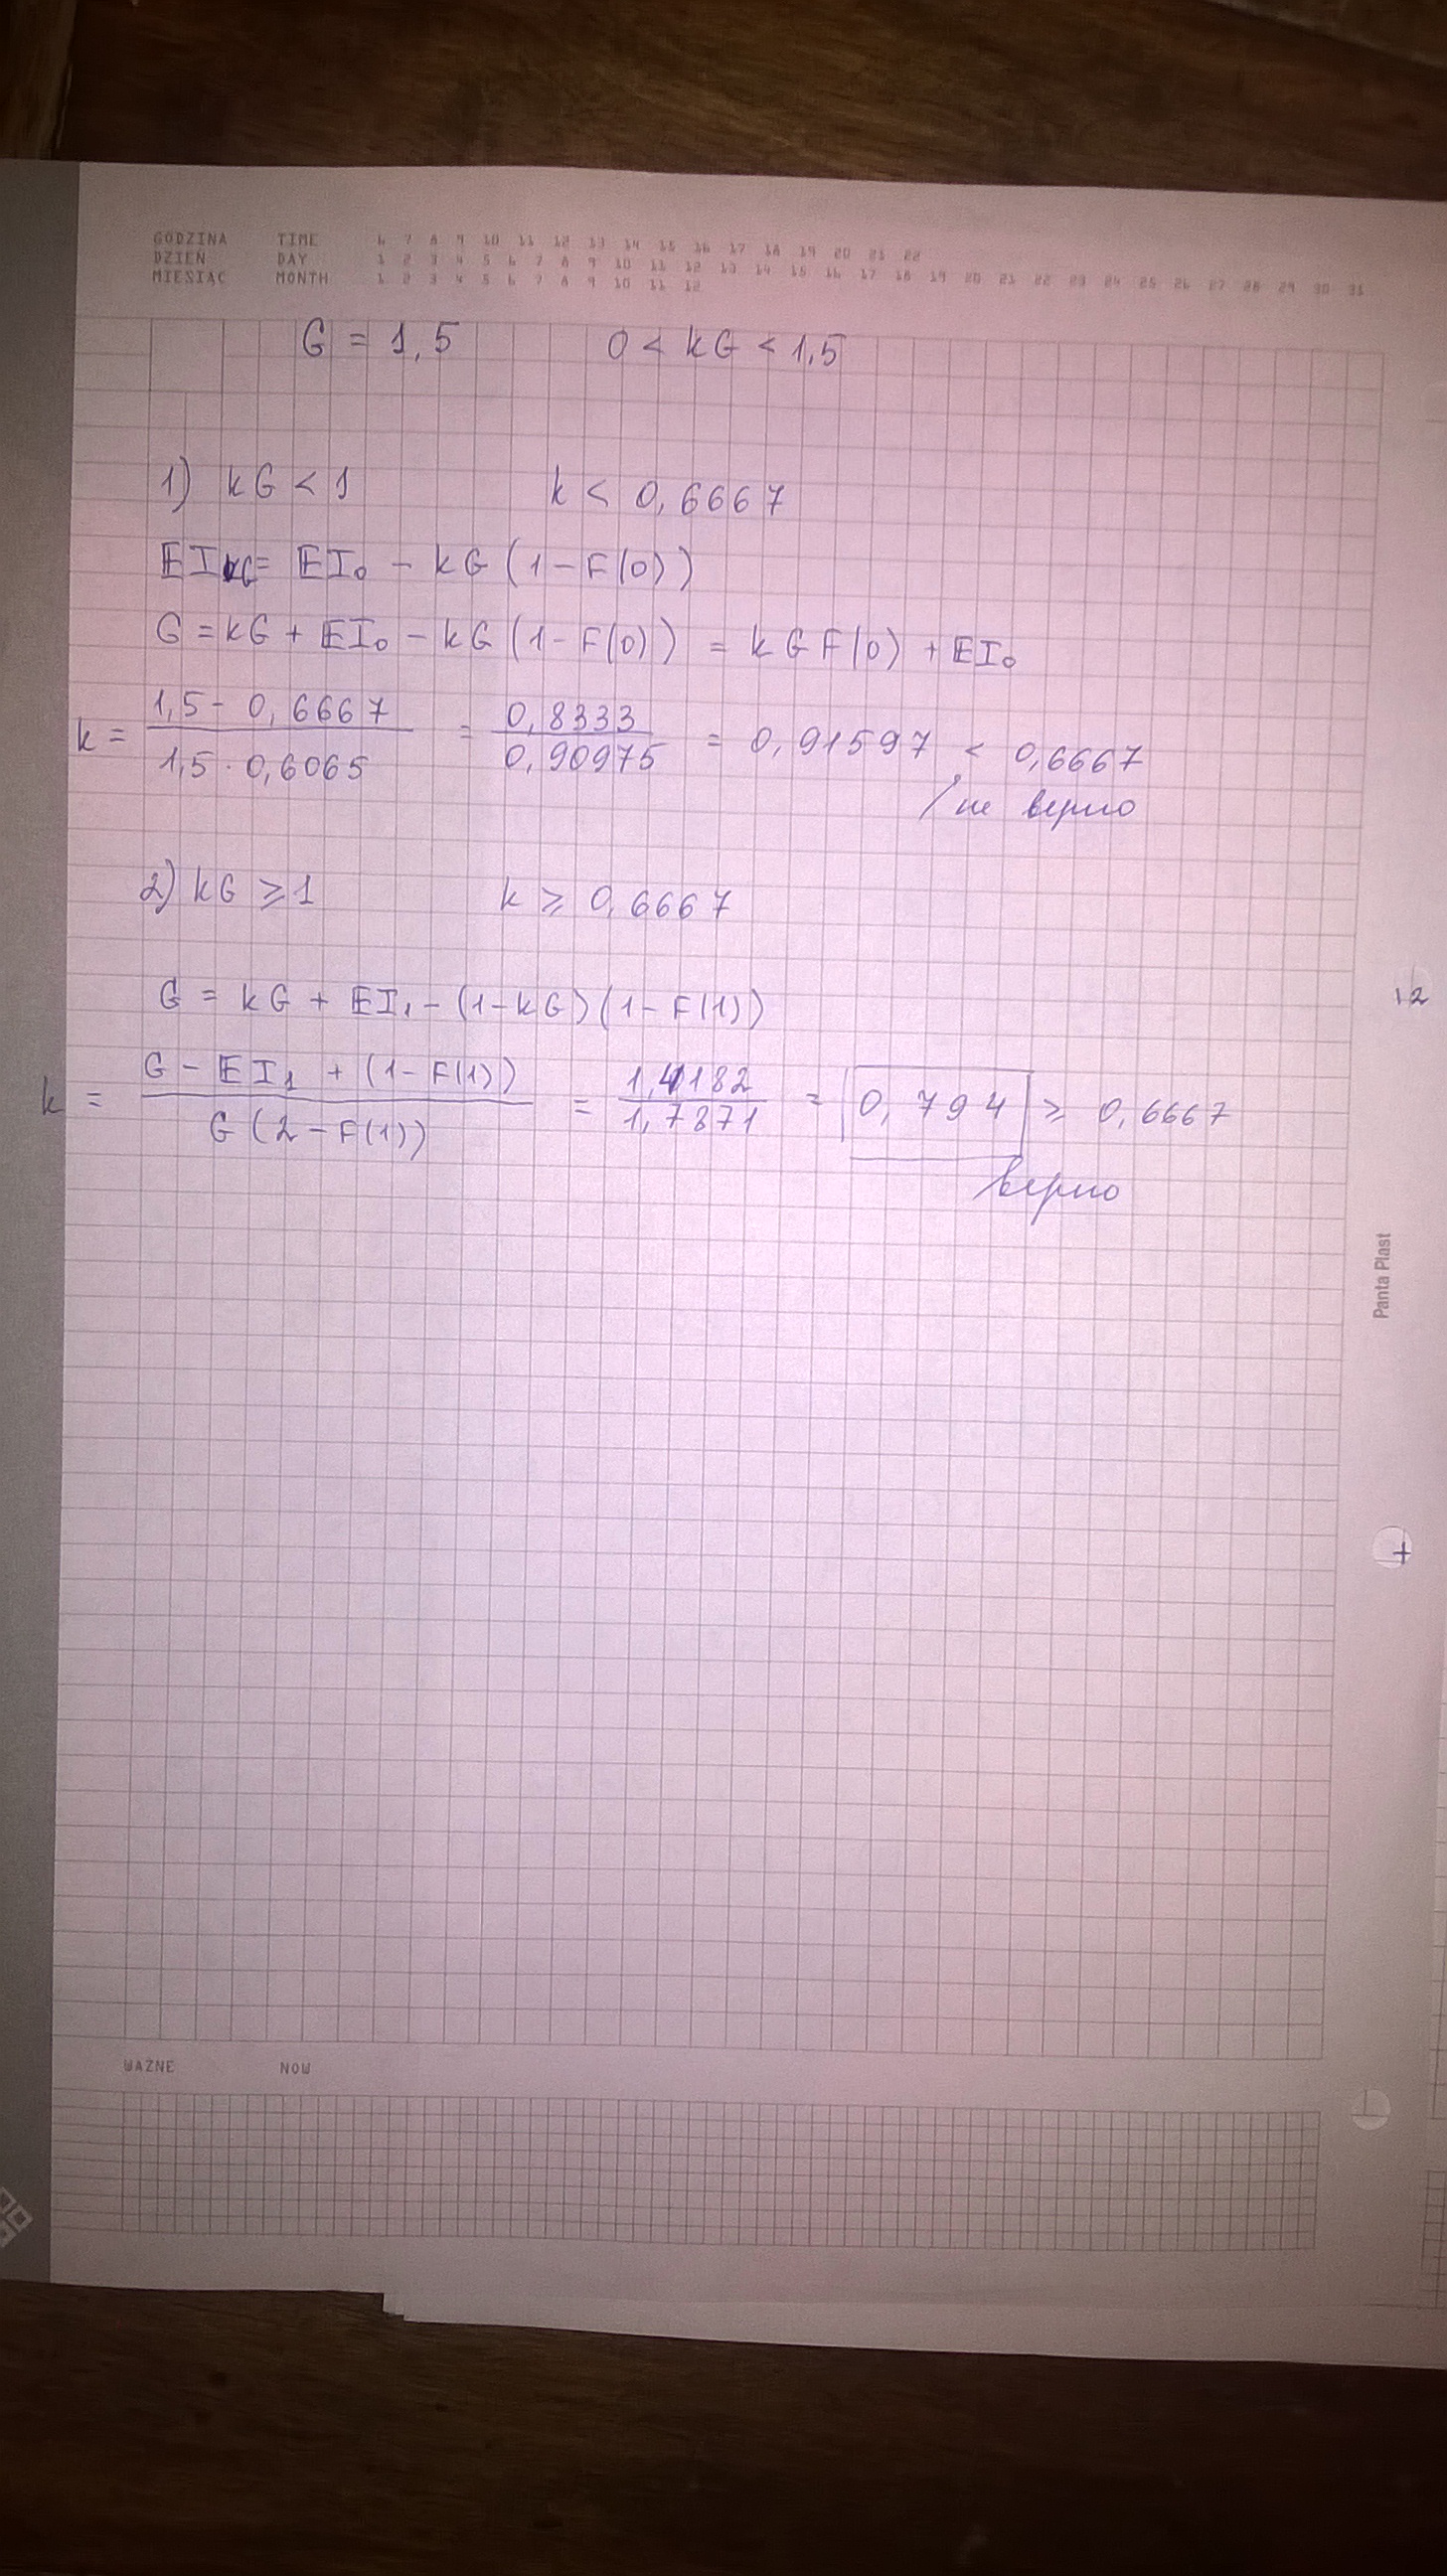 GODZINA TIME 6 7 8 9 10 11 12 13 14 15 16 17 18 19 20 21 22
DZIEŃ DAY 1 2 3 4 5 6 7 8 9 10 11 12 13 14 15 16 17 18 19 20 21 22 23 24 25 26 27 28 29 30 31
MIESIĄC MONTH 1 2 3 4 5 6 7 8 9 10 11 12
G = 1,5 0 < kG < 1,5
1) kG < 1 k < 0,6667
EI_kG = EI₀ - kG (1 - F(0))
G = kG + EI₀ - kG (1 - F(0)) = kGF(0) + EI₀
k = (1,5 - 0,6667)/(1,5 · 0,6065) = 0,8333/0,90975 = 0,91597 < 0,6667
не верно
2) kG ≥ 1 k ≥ 0,6667
G = kG + EI₁ - (1 - kG)(1 - F(1))
k = (G - EI₁ + (1 - F(1)))/(G(2 - F(1))) = 1,4182/1,7871 = 0,794 ≥ 0,6667
верно
12
Panta Plast
+
WAŻNE NOW